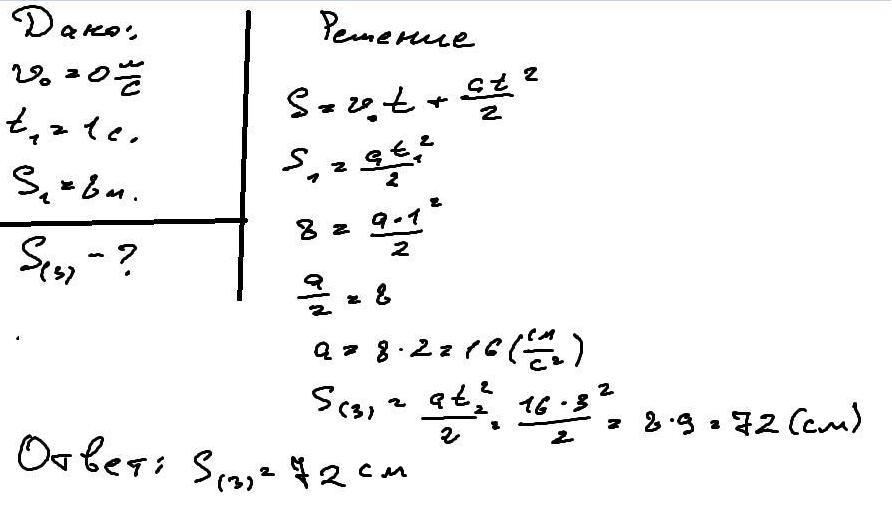 Дано:
v₀ = 0 м/с
t₁ = 1 с.
S₁ = 8 м.
S₍₃₎ - ?
Решение
S = v₀t + at²/2
S₁ = at₁²/2
8 = a·1²/2
a/2 = 8
a = 8·2 = 16 (см/с²)
S₍₃₎ = at₂²/2 = 16·3²/2 = 8·9 = 72 (см)
Ответ: S₍₃₎ = 72 см